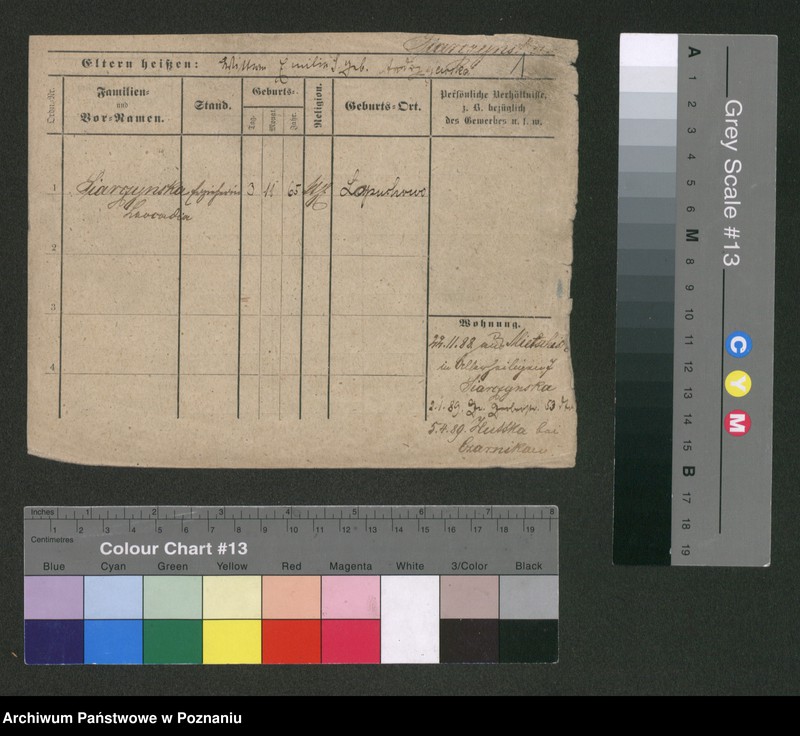 Eltern heißen: Wittwe Emilie S geb.
Ordn.-Nr.
Familien-
und
Vor-Namen.
Stand.
Geburts-
Tag.
Monat.
Jahr.
Religion.
Geburts-Ort.
Persönliche Verhältnisse,
z. B. bezüglich
des Gewerbes u. s. w.
1 Siarczynska 3 11 65 Lopuchowo
Leocadia
2
3
4
Wohnung.
22.11.88 aus
in
Siarczynska
2.1.89.
5.4.89. Huttka bei
Czarnikau
A 1 2 3 4 5 6 M 8 9 10 11 12 13 14 15 B 17 18 19
Grey Scale #13
C
Y
M
Inches 1 2 3 4 5 6 7 8
Centimetres 1 2 3 4 5 6 7 8 9 10 11 12 13 14 15 16 17 18 19
Colour Chart #13
Blue Cyan Green Yellow Red Magenta White 3/Color Black
Archiwum Państwowe w Poznaniu